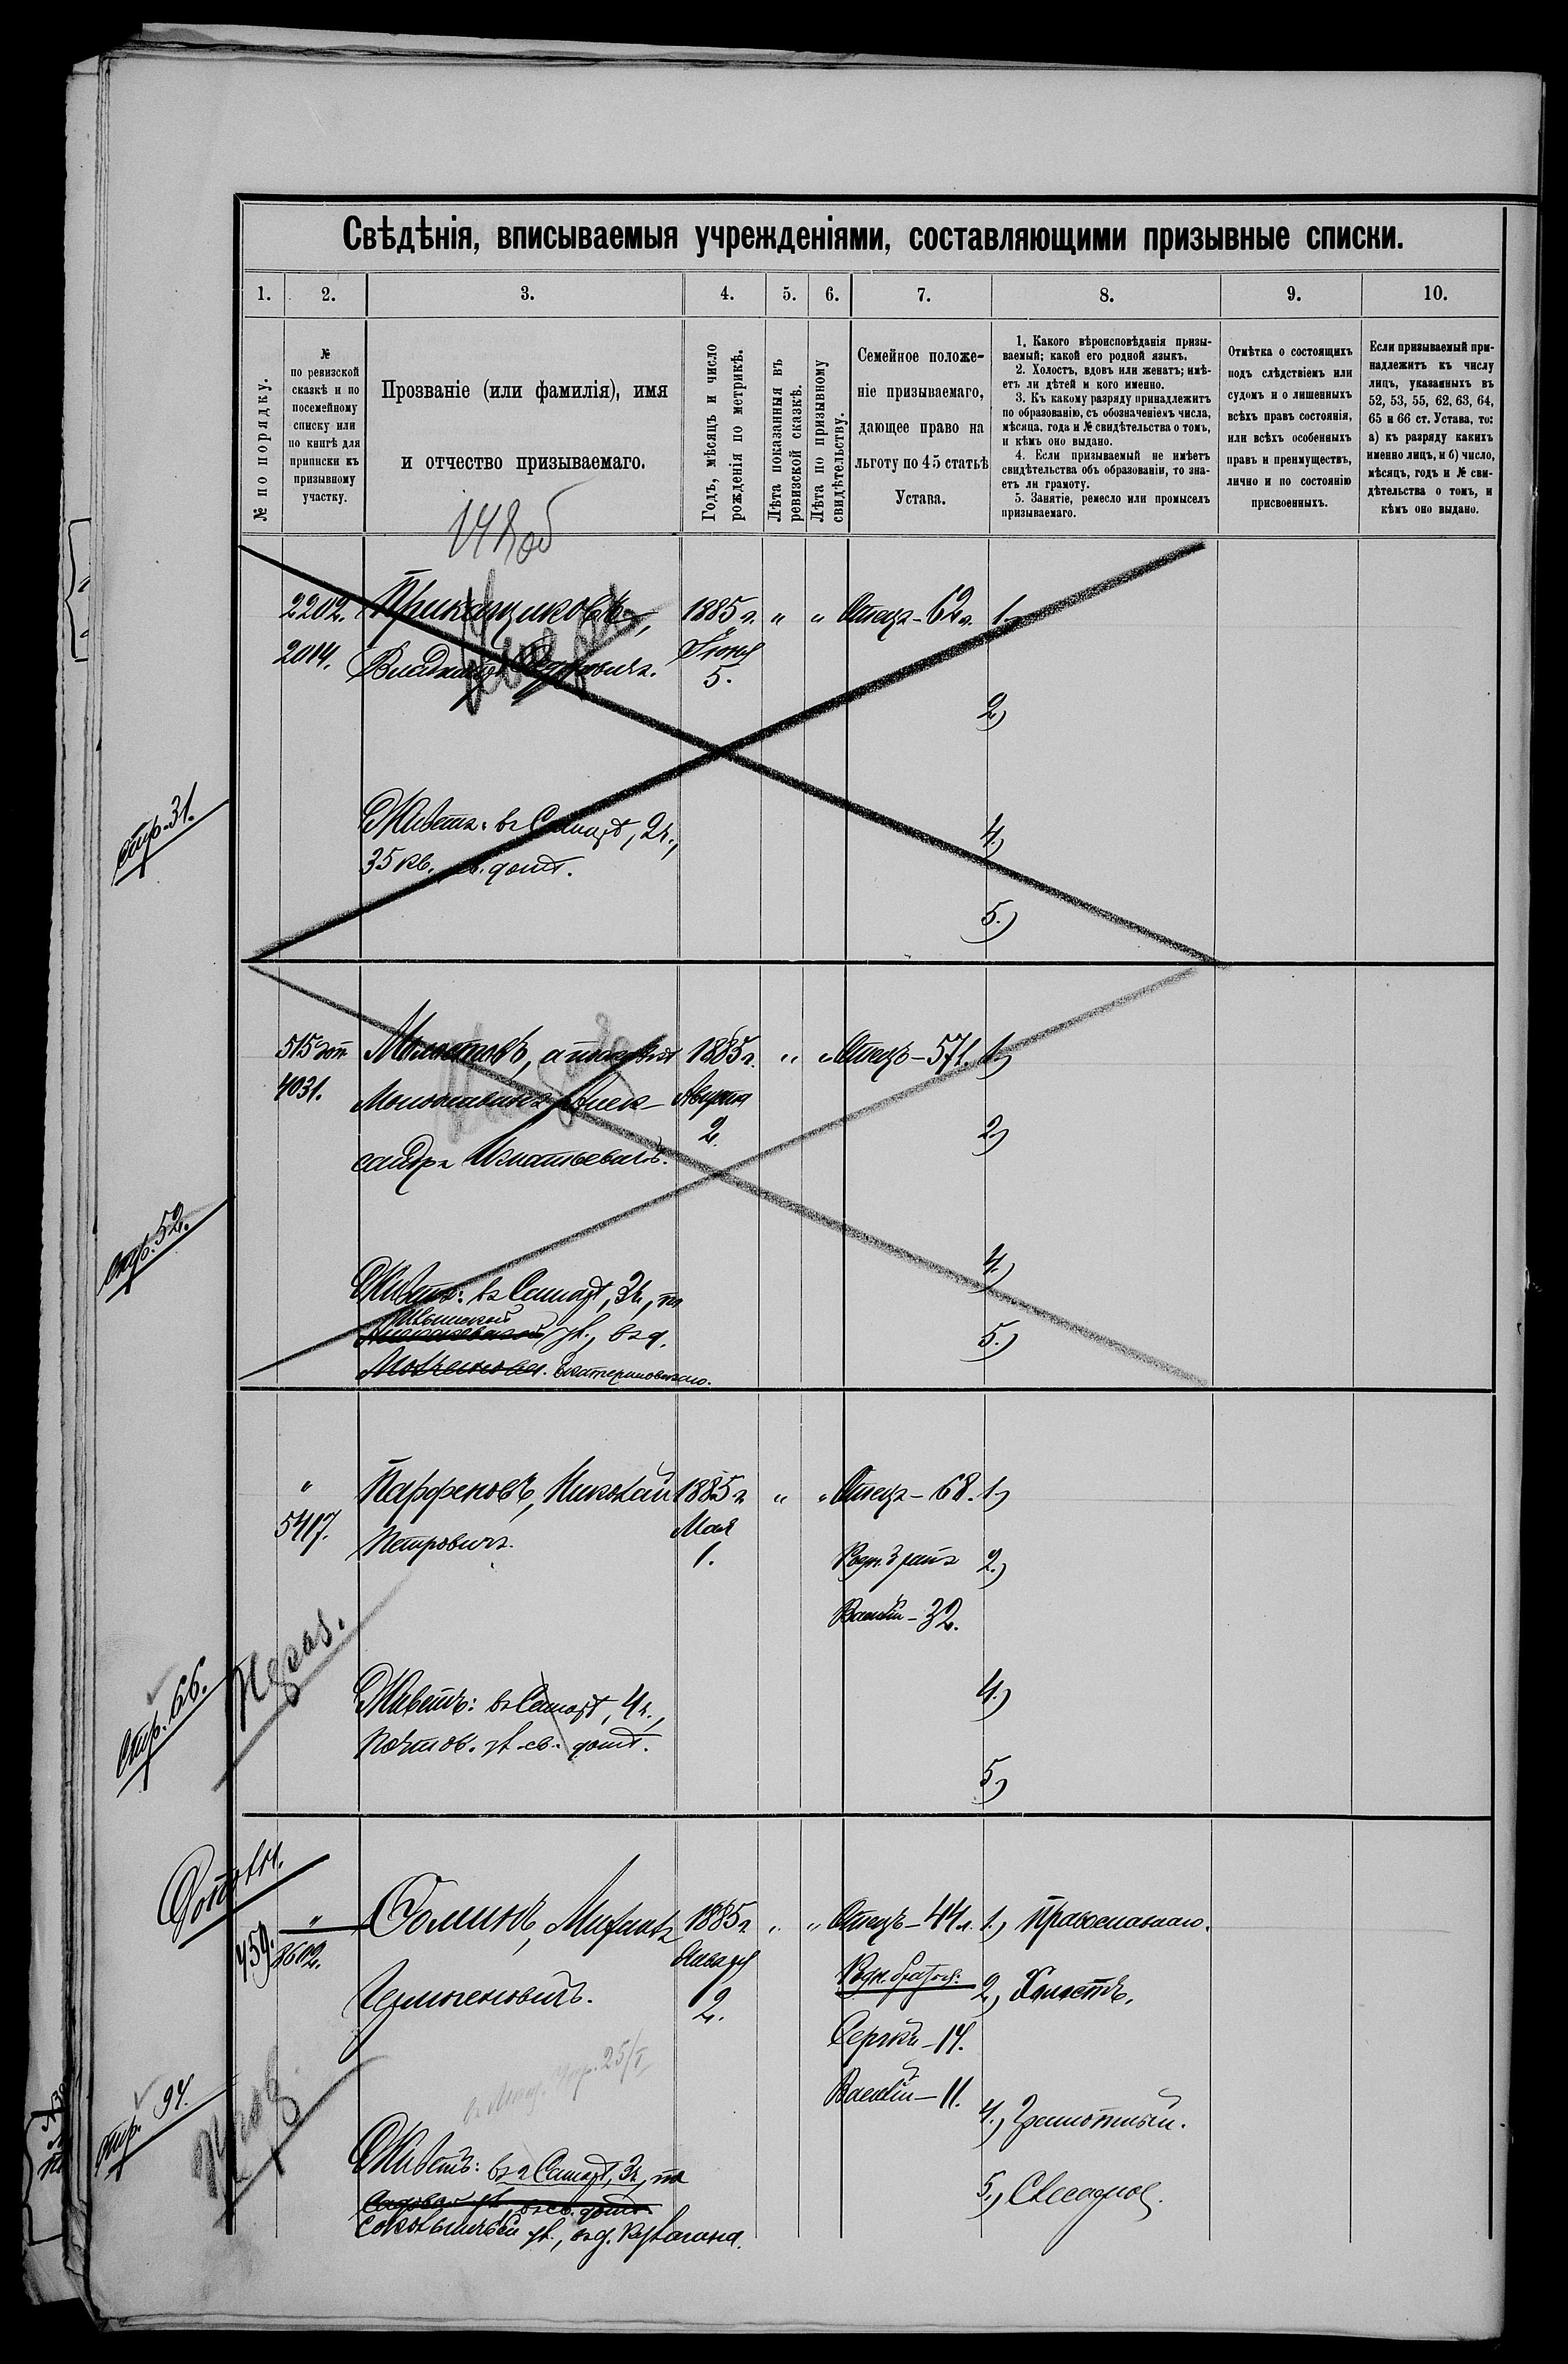 Свѣдѣнія, вписываемыя учрежденіями, составляющими призывные списки.
1. 2. 3. 4. 5. 6. 7. 8. 9. 10.
№ по порядку.
№
по ревизской
сказкѣ и по
посемейному
списку или
по книгѣ для
приписки къ
призывному
участку.
Прозваніе (или фамилія), имя
и отчество призываемаго.
Годъ, мѣсяцъ и число
рожденія по метрикѣ.
Лѣта показанныя въ
ревизской сказкѣ.
Лѣта по призывному
свидѣтельству.
Семейное положе-
ніе призываемаго,
дающее право на
льготу по 45 статьѣ
Устава.
1. Какого вѣроисповѣданія призы-
ваемый; какой его родной языкъ.
2. Холостъ, вдовъ или женатъ; имѣ-
етъ ли дѣтей и кого именно.
3. Къ какому разряду принадлежитъ
по образованію, съ обозначеніемъ числа,
мѣсяца, года и № свидѣтельства о томъ,
и кѣмъ оно выдано.
4. Если призываемый не имѣетъ
свидѣтельства объ образованіи, то зна-
етъ ли грамоту.
5. Занятіе, ремесло или промыселъ
призываемаго.
Отмѣтка о состоящихъ
подъ слѣдствіемъ или
судомъ и о лишенныхъ
всѣхъ правъ состоянія,
или всѣхъ особенныхъ
правъ и преимуществъ,
лично и по состоянію
присвоенныхъ.
Если призываемый при-
надлежитъ къ числу
лицъ, указанныхъ въ
52, 53, 55, 62, 63, 64,
65 и 66 ст. Устава, то:
а) къ разряду какихъ
именно лицъ, и б) число,
мѣсяцъ, годъ и № сви-
дѣтельства о томъ, и
кѣмъ оно выдано.
2202. Прикащиковъ, 1885 г. " " Отецъ - 62 л. 1)
2014. Іюня
5.
2)
стр. 31.
Живетъ: въ Самарѣ, 2 ч., 4.)
35 кв. св. домѣ.
5.)
515 1885 г. " " Отецъ - 57 л. 1)
4031. Алек- Августа
сандръ Игнатьевичъ. 2.
2)
стр. 52.
Живетъ: въ Самарѣ, 3 ч., по 4.)
Ильинской ул., въ д. 5.)
Екатериновскаго.
" Парфеновъ, Николай 1885 г. " " Отецъ - 68. 1)
5417. Петровичъ. Мая
1.
Родн. братъ 2.)
Василій - 32.
стр. 66.
Живетъ: въ Самарѣ, 4 ч., 4.)
Почтов. ул. св. домѣ.
5)
" Фоминъ, Михаилъ 1885 г. " " Отецъ - 44 л. 1.) Православнаго.
459. 8602. Января
Гермогеновичъ. 2.
Родн. братья: 2.) Холостъ.
Сергѣй - 14.
Василій - 11.
4.) Грамотный.
стр. 94.
Живетъ: въ г. Самарѣ, 3 ч., по
5.) Слесарь.
Садовой ул., въ св. домѣ
ул., въ д.